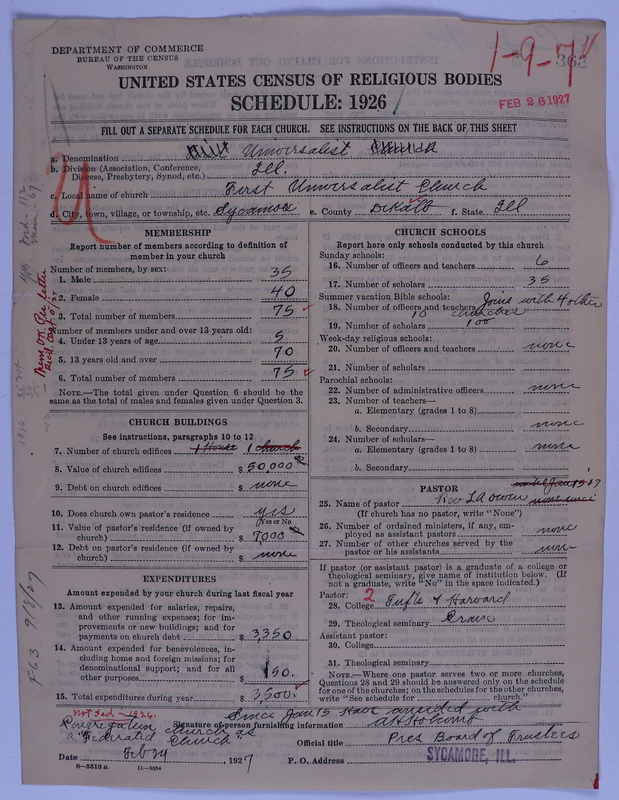 DEPARTMENT OF COMMERCE
BUREAU OF THE CENSUS
WASHINGTON
1-9-7
363
UNITED STATES CENSUS OF RELIGIOUS BODIES
SCHEDULE: 1926
FEB 26 1927
FILL OUT A SEPARATE SCHEDULE FOR EACH CHURCH. SEE INSTRUCTIONS ON THE BACK OF THIS SHEET
a. Denomination Universalist Church
b. Division (Association, Conference, Diocese, Presbytery, Synod, etc.) Ill.
c. Local name of church First Universalist Church
d. City, town, village, or township, etc. Sycamore e. County DeKalb f. State Ill
MEMBERSHIP
Report number of members according to definition of
member in your church
Number of members, by sex:
1. Male 35
2. Female 40
3. Total number of members 75
Number of members under and over 13 years old:
4. Under 13 years of age 5
5. 13 years old and over 70
6. Total number of members 75
NOTE.—The total given under Question 6 should be
same as the total of males and females given under Question 3.
CHURCH BUILDINGS
See instructions, paragraphs 10 to 12
7. Number of church edifices 1 House 1 church
8. Value of church edifices $ 50,000
9. Debt on church edifices $ none
10. Does church own pastor's residence? yes
(Yes or No)
11. Value of pastor's residence (if owned by
church) $ 7000
12. Debt on pastor's residence (if owned by
church) $ none
EXPENDITURES
Amount expended by your church during last fiscal year
13. Amount expended for salaries, repairs,
and other running expenses; for im-
provements or new buildings; and for
payments on church debt $ 3,350
14. Amount expended for benevolences, in-
cluding home and foreign missions; for
denominational support; and for all
other purposes $ 150.
15. Total expenditures during year $ 3,500.
CHURCH SCHOOLS
Report here only schools conducted by this church
Sunday schools:
16. Number of officers and teachers 6
17. Number of scholars 35
Summer vacation Bible schools:
18. Number of officers and teachers Joins with 4 other
10 churches
19. Number of scholars 100
Week-day religious schools:
20. Number of officers and teachers none
21. Number of scholars
Parochial schools:
22. Number of administrative officers none
23. Number of teachers—
a. Elementary (grades 1 to 8)
b. Secondary none
24. Number of scholars—
a. Elementary (grades 1 to 8) none
b. Secondary
PASTOR
25. Name of pastor Rev
(If church has no pastor, write "None")
26. Number of ordained ministers, if any, em-
ployed as assistant pastors none
27. Number of other churches served by the
pastor or his assistants none
If pastor (or assistant pastor) is a graduate of a college or
theological seminary, give name of institution below. (If
not a graduate, write "No" in the space indicated.)
Pastor: 2
28. College Tufts & Harvard
29. Theological seminary Crane
Assistant pastor:
30. College
31. Theological seminary
NOTE.—Where one pastor serves two or more churches,
Questions 28 and 29 should be answered only on the schedule
for one of the churches; on the schedules for the other churches,
write "See schedule for church."
Not Fed in 1926.
Since Jan 15 Have with
Congregation church as
a "Federated Church"
Signature of person furnishing information A H Holcomb
Official title Pres Board of Trustees
Date Feb 24, 1927 P. O. Address SYCAMORE, ILL.
8-5518a 11-9054
F63 9/8/27